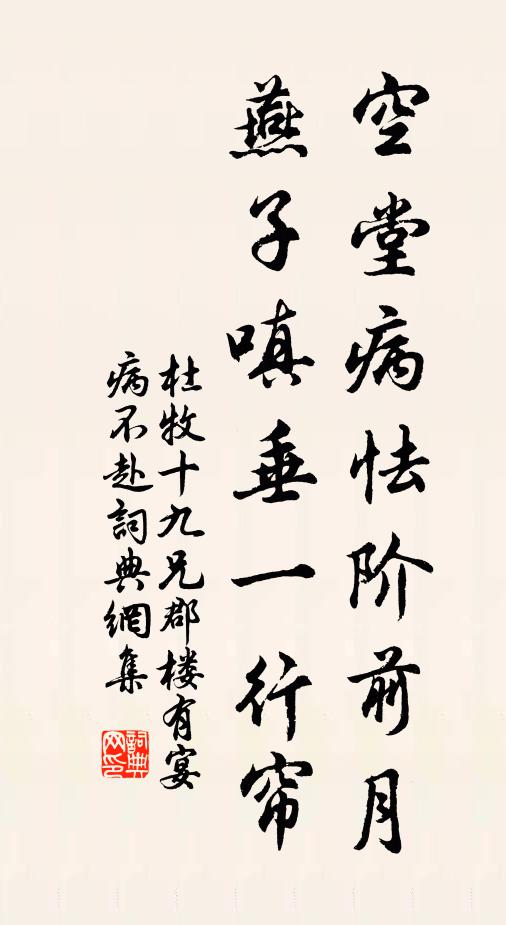 空堂病怯阶前月
燕子嗔垂一行帘
杜牧十九兄郡楼有宴
病不赴詞典網集
詞典
网印